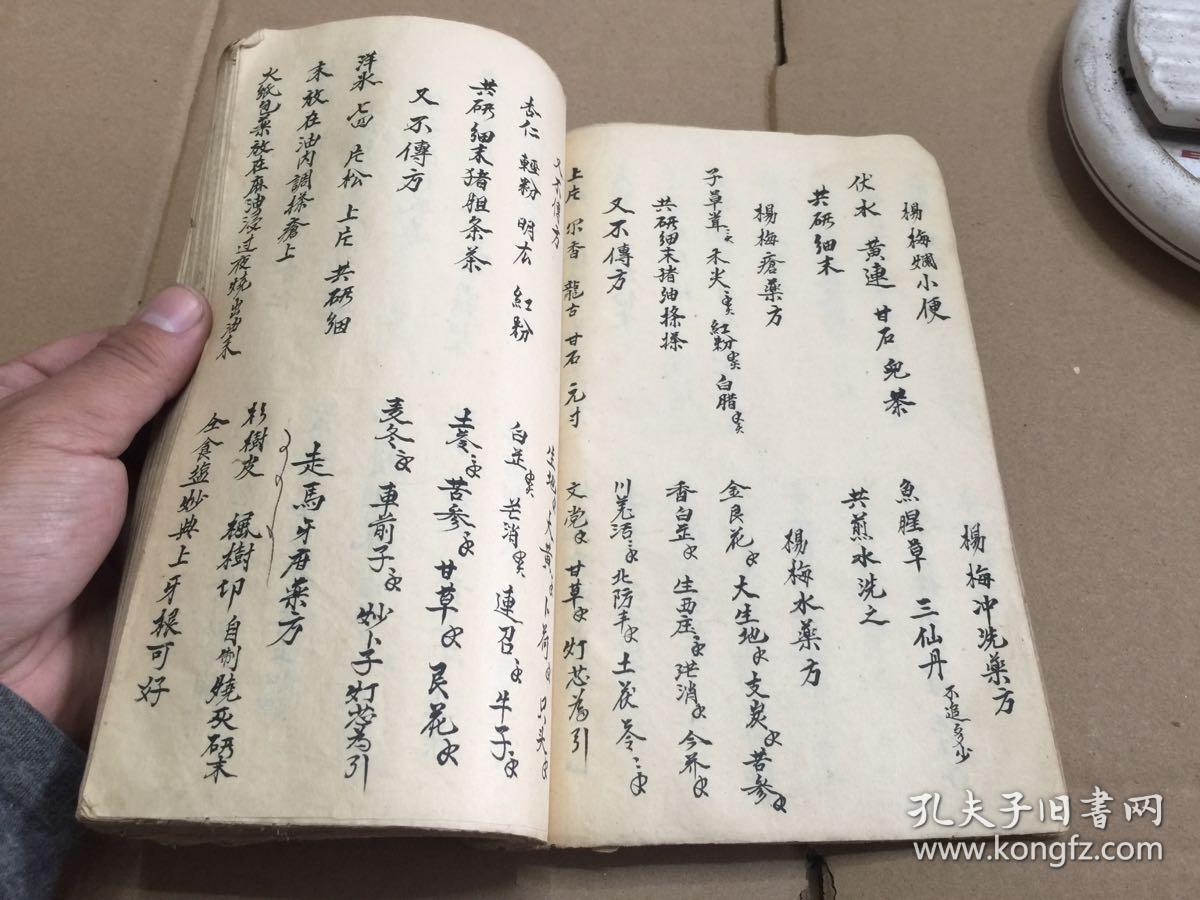 楊梅爛小便
伏水 黃連 甘石 兒茶
共研細末
楊梅瘡藥方
子草茸 禾尖 紅粉 白腊
共研細末猪油搽搽
又不傳方
上片 尔香 龍古 甘石 元寸
楊梅冲洗藥方
魚腥草 三仙丹 不退多少
共煎水洗之
楊梅水藥方
金艮花 大生地 支炭 苦參
香白芷 生西庄 洪消 今芥
川羌活 北防丰 土茯苓
文党 甘草 灯芯為引
又不傳方
杏仁 輕粉 明広 紅粉
共研細末猪胆条茶
又不傳方
洋氷 片松 上片 共研细
末放在油内調搽瘡上
火紙包藥放在麻油浸过夜燒出油末
生地 大黃 卜荷 只头
白芷 芒消 連召 牛子
土苓 苦參 甘草 艮花
麦冬 車前子 妙卜子灯芯為引
走馬牙疳藥方
杉樹皮 楓樹切 自制燒灰研末
仝食盐妙典上牙根可好
孔夫子旧书网
www.kongfz.com